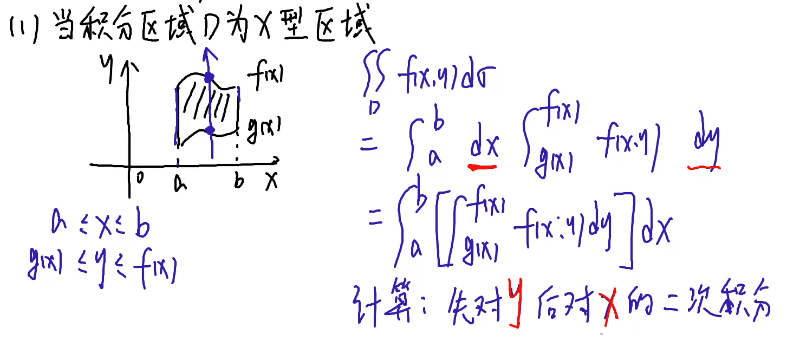 (1) 当积分区域D为X型区域
y
f(x)
g(x)
0 a b x
a ≤ x ≤ b
g(x) ≤ y ≤ f(x)
∬_D f(x,y)dσ
= ∫_a^b dx ∫_{g(x)}^{f(x)} f(x,y) dy
= ∫_a^b [∫_{g(x)}^{f(x)} f(x,y)dy] dx
计算：先对y后对x的二次积分